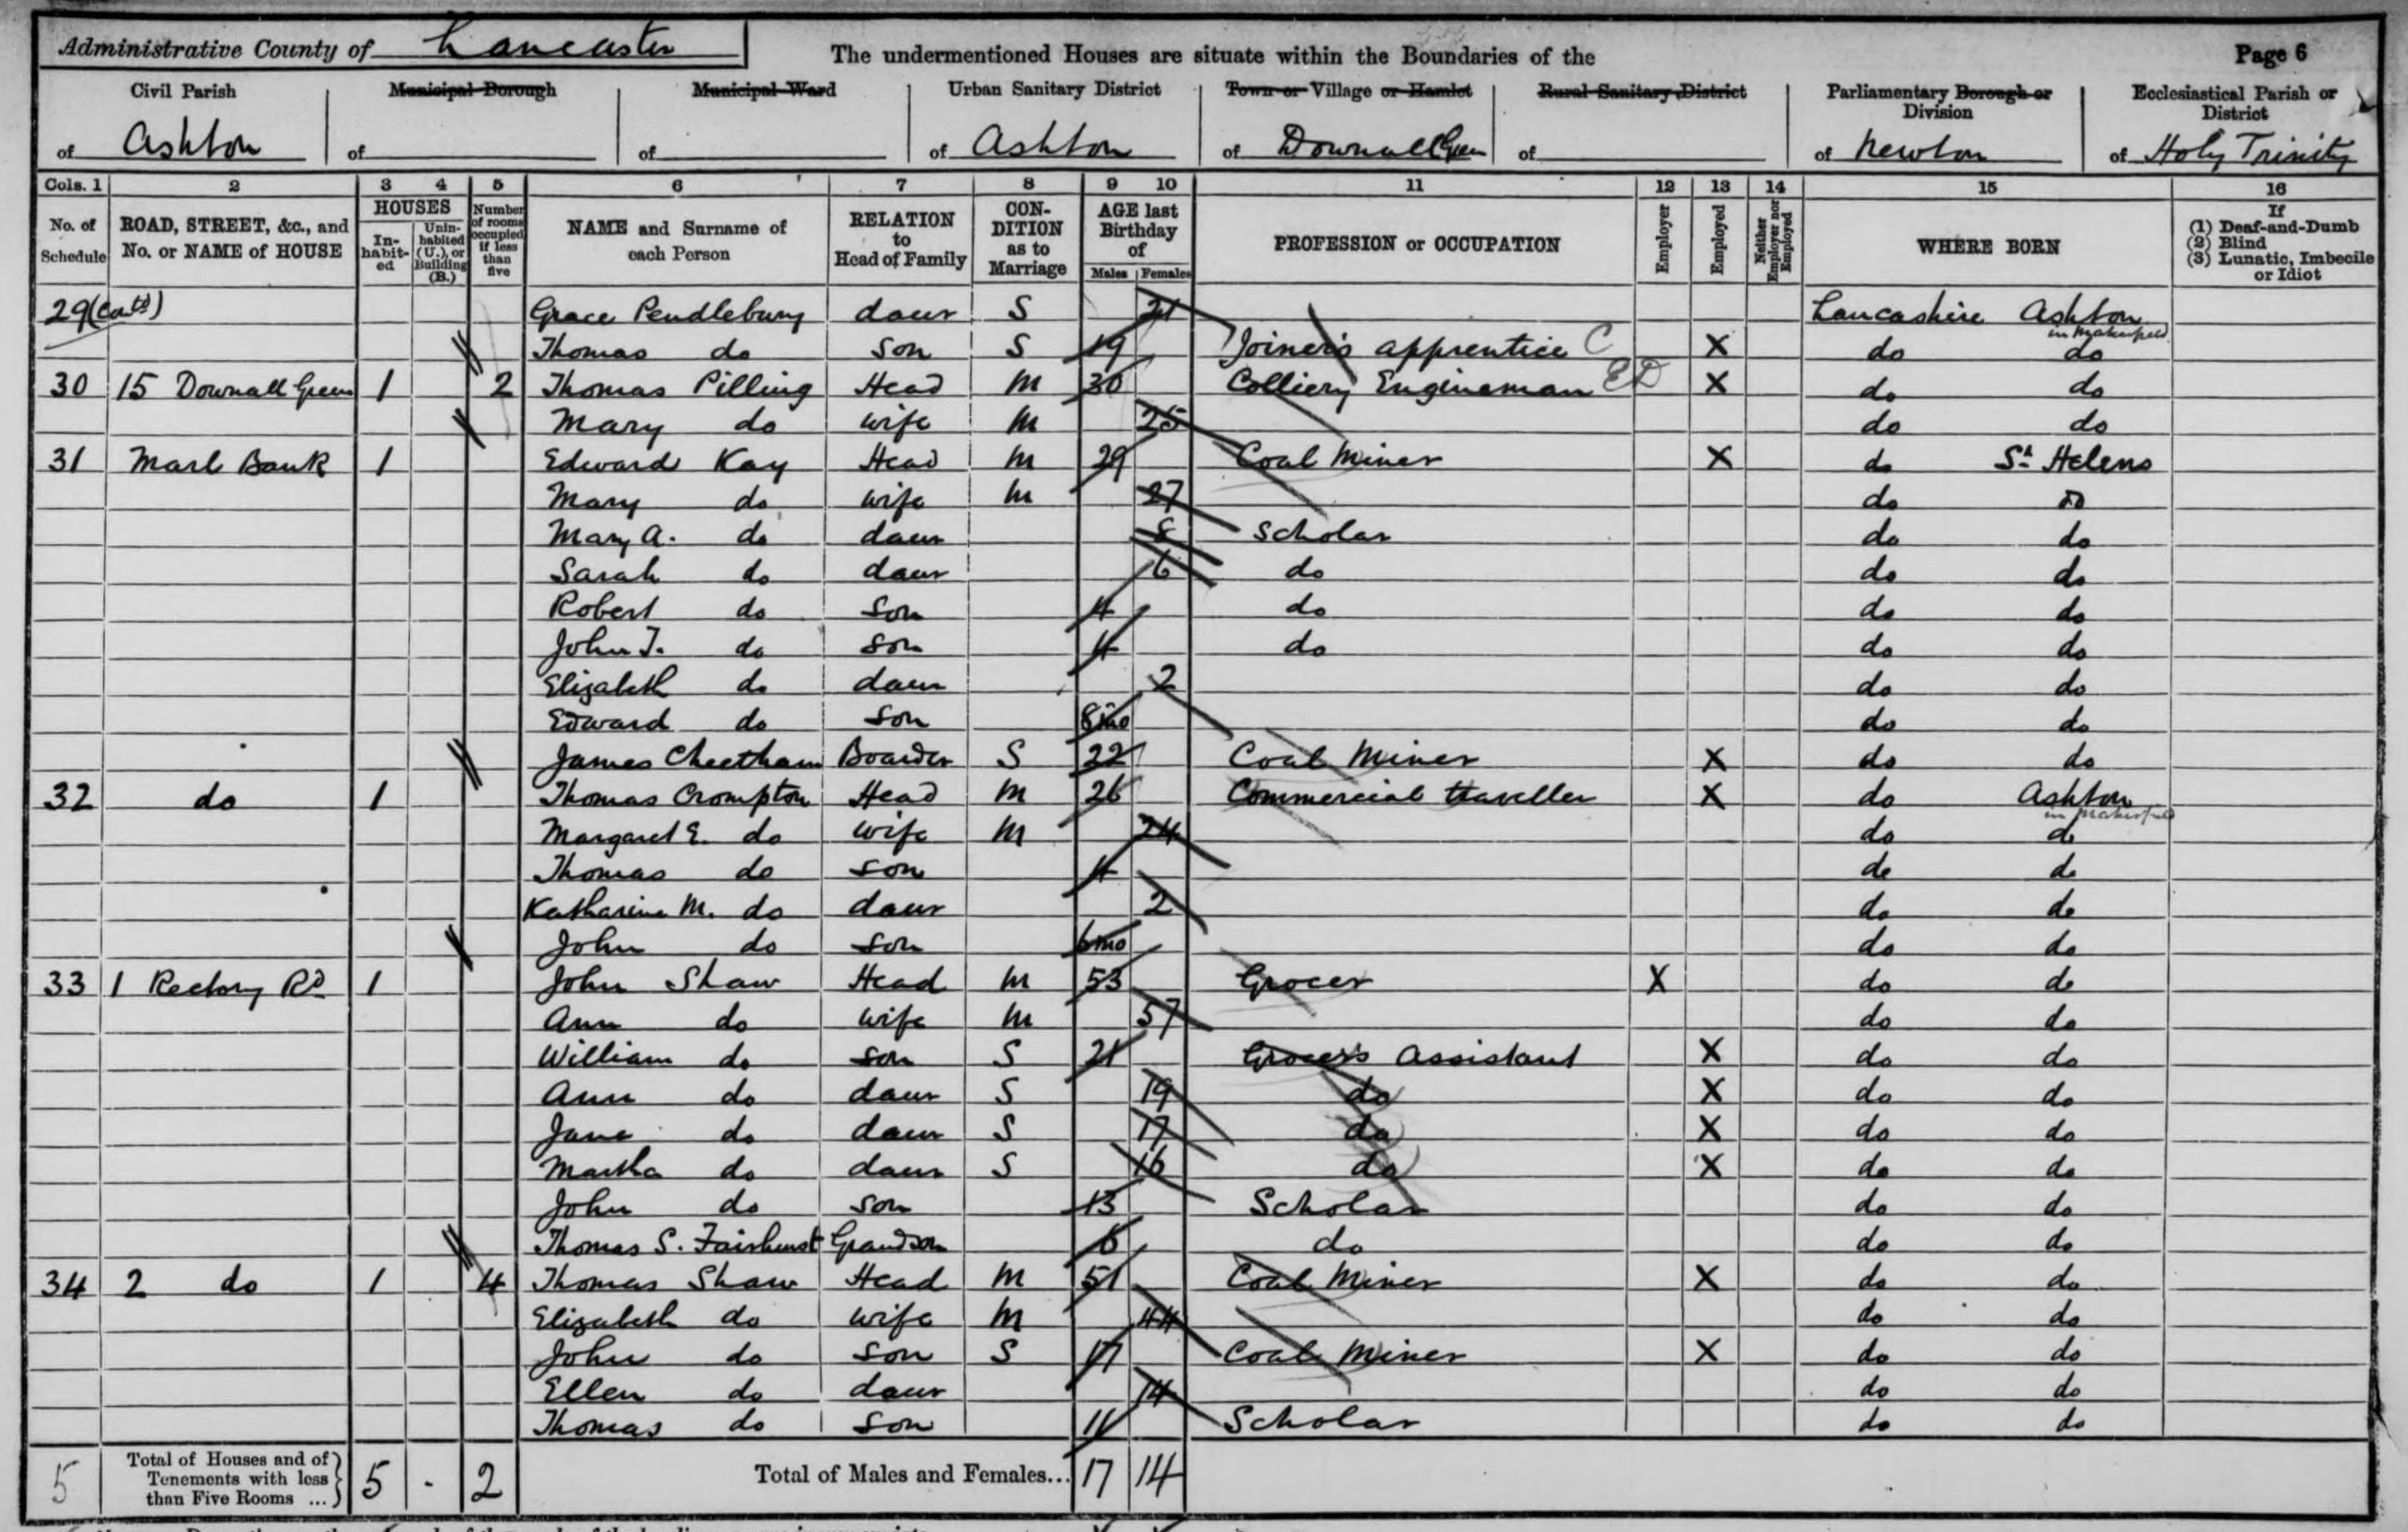 Administrative County of Lancaster
The undermentioned Houses are situate within the Boundaries of the
Page 6
Civil Parish of Ashton
Municipal Borough of
Municipal Ward of
Urban Sanitary District of Ashton
Town or Village or Hamlet of Downall Green
Rural Sanitary District of
Parliamentary Borough or Division of Newton
Ecclesiastical Parish or District of Holy Trinity
Cols. 1 2 3 4 5 6 7 8 9 10 11 12 13 14 15 16
No. of Schedule
ROAD, STREET, &c., and No. or NAME of HOUSE
HOUSES
In-habit-ed
Unin-habited (U.), or Building (B.)
Number of rooms occupied if less than five
NAME and Surname of each Person
RELATION to Head of Family
CON-DITION as to Marriage
AGE last Birthday of
Males Females
PROFESSION or OCCUPATION
Employer
Employed
Neither Employer nor Employed
WHERE BORN
If (1) Deaf-and-Dumb (2) Blind (3) Lunatic, Imbecile or Idiot
29 (Contd) Grace Pendlebury daur S 21 Lancashire Ashton in Makerfield
Thomas do son S 19 Joiner's apprentice C X do do
30 15 Downall Green 1 2 Thomas Pilling Head M 30 Colliery Engineman ED X do do
Mary do wife M 25 do do
31 Marl Bank 1 Edward Kay Head M 29 Coal Miner X do St Helens
Mary do wife M 27 do do
Mary A. do daur 8 Scholar do do
Sarah do daur 6 do do do
Robert do son 4 do do do
John T. do son 4 do do do
Elizabeth do daur 2 do do
Edward do son 8mo do do
James Cheetham Boarder S 22 Coal Miner X do do
32 do 1 Thomas Crompton Head M 26 Commercial traveller X do Ashton in Makerfield
Margaret E. do wife M 24 do do
Thomas do son 4 do do
Katharine M. do daur 2 do do
John do son 6mo do do
33 1 Rectory Rd 1 John Shaw Head M 53 Grocer X do do
Ann do wife M 57 do do
William do son S 21 Grocer's Assistant X do do
Ann do daur S 19 do X do do
Jane do daur S 17 do X do do
Martha do daur S 16 do X do do
John do son 13 Scholar do do
Thomas S. Fairhurst Grandson 6 do do do
34 2 do 1 4 Thomas Shaw Head M 51 Coal Miner X do do
Elizabeth do wife M 44 do do
John do son S 17 Coal Miner X do do
Ellen do daur 14 do do
Thomas do son 11 Scholar do do
5 Total of Houses and of Tenements with less than Five Rooms ... 5 - 2 Total of Males and Females... 17 14